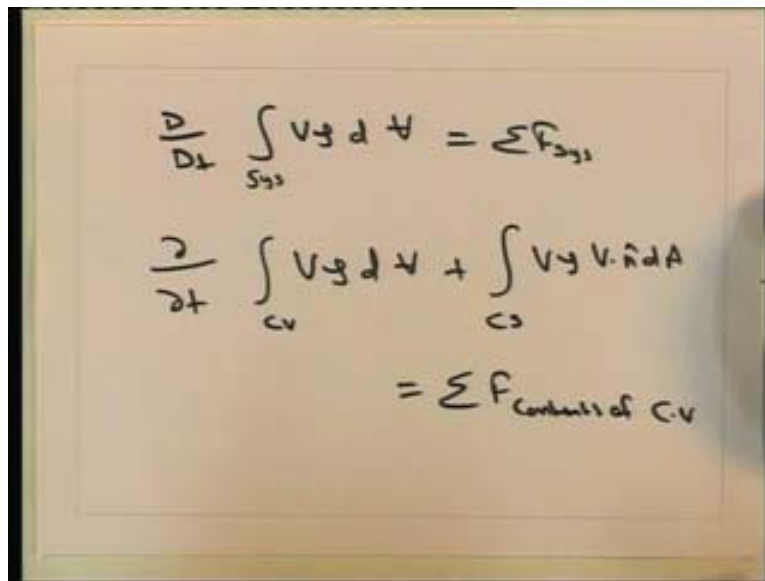 D/Dt ∫_Sys Vρ d V̶ = ΣF_Sys
∂/∂t ∫_CV Vρ d V̶ + ∫_CS Vρ V·n̂ dA
= ΣF_Contents of C.V